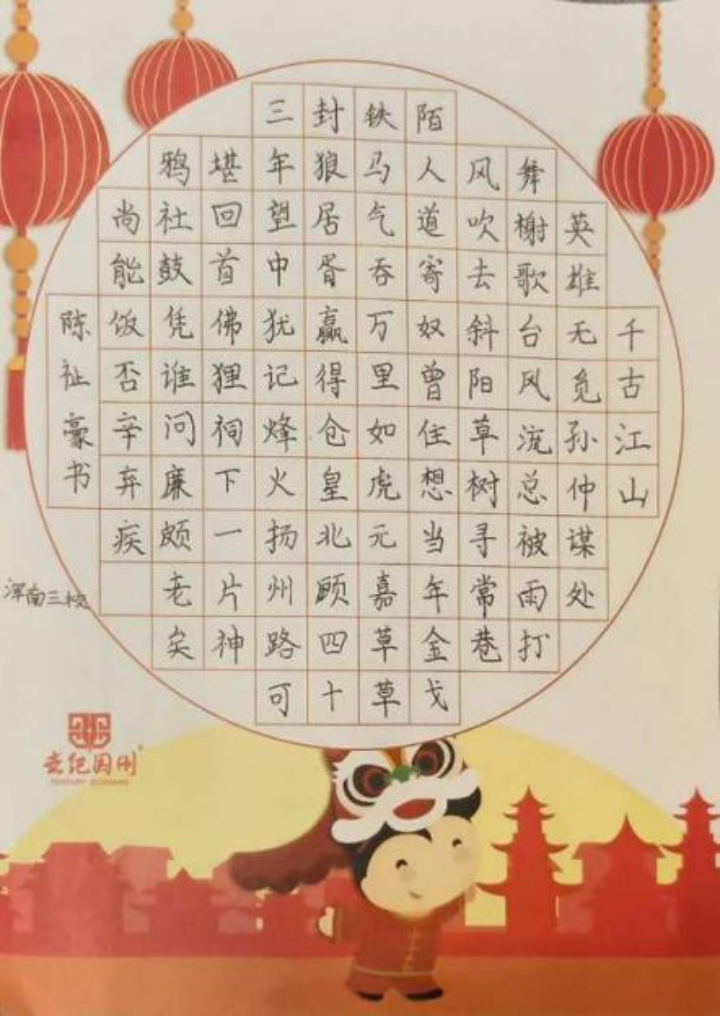 千古江山
英雄无觅孙仲谋处
舞榭歌台风流总被雨打
风吹去斜阳草树寻常巷
陌人道寄奴曾住想当年金戈
铁马气吞万里如虎元嘉草草
封狼居胥赢得仓皇北顾四十
三年望中犹记烽火扬州路可
堪回首佛狸祠下一片神
鸦社鼓凭谁问廉颇老矣
尚能饭否辛弃疾
陈祉豪书
浑南三校
世纪国刚